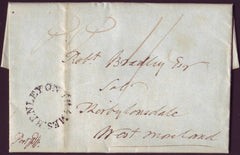 Robt Bradley Esr
Solr
Kirkbylonsdale
Westmorland
HENLEY ON THAMES